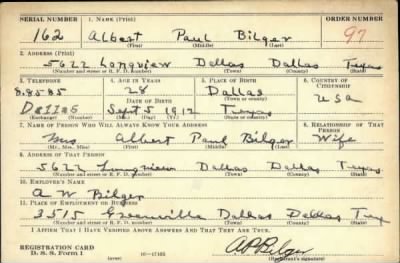 SERIAL NUMBER 1. NAME (Print) ORDER NUMBER
162 Albert Paul Bilger 97
(First) (Middle) (Last)
2. ADDRESS (Print)
5622 Longview Dallas Dallas Texas
(Number and street or R. F. D. number) (Town) (County) (State)
3. TELEPHONE 4. AGE IN YEARS 5. PLACE OF BIRTH 6. COUNTRY OF CITIZENSHIP
8.8585 28 Dallas
(Town or county)
DATE OF BIRTH USA
Dallas Sept 5 1912 Texas
(Exchange) (Number) (Mo.) (Day) (Yr.) (State or country)
7. NAME OF PERSON WHO WILL ALWAYS KNOW YOUR ADDRESS RELATIONSHIP OF THAT PERSON
Mrs Albert Paul Bilger Wife
(Mr., Mrs., Miss) (First) (Middle) (Last)
8. ADDRESS OF THAT PERSON
5622 Longview Dallas Dallas Texas
(Number and street or R. F. D. number) (Town) (County) (State)
10. EMPLOYER'S NAME
A W Bilger
11. PLACE OF EMPLOYMENT OR BUSINESS
3515 Greenville Dallas Dallas Tex
(Number and street or R. F. D. number) (Town) (County) (State)
I AFFIRM THAT I HAVE VERIFIED ABOVE ANSWERS AND THAT THEY ARE TRUE.
REGISTRATION CARD
D. S. S. Form 1 (over) 16-17105 A.P. Bilger
(Registrant's signature)